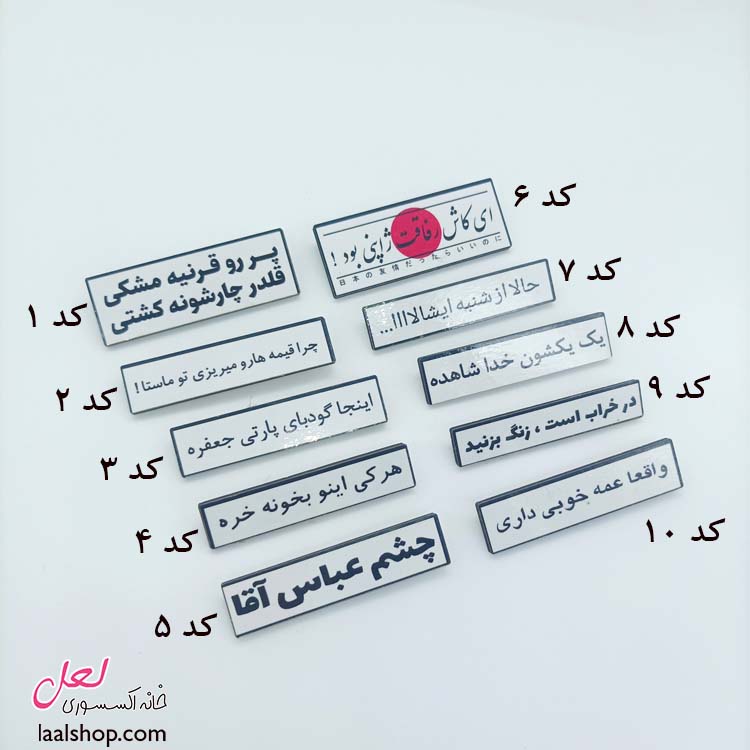 کد ۱
پر رو قرنیه مشکی
قلدر چارشونه کشتی
کد ۲
چرا قیمه هارو میریزی تو ماستا!
کد ۳
اینجا گودبای پارتی جعفره
کد ۴
هر کی اینو بخونه خره
کد ۵
چشم عباس آقا
کد ۶
ای کاش رفاقت ژاپنی بود!
日本の友情だったらいいのに
کد ۷
حالا از شنبه ایشالاااا...
کد ۸
یک یکشون خدا شاهده
کد ۹
در خراب است ، زنگ بزنید
کد ۱۰
واقعا عمه خوبی داری
لعل
خانه اکسسوری
laalshop.com